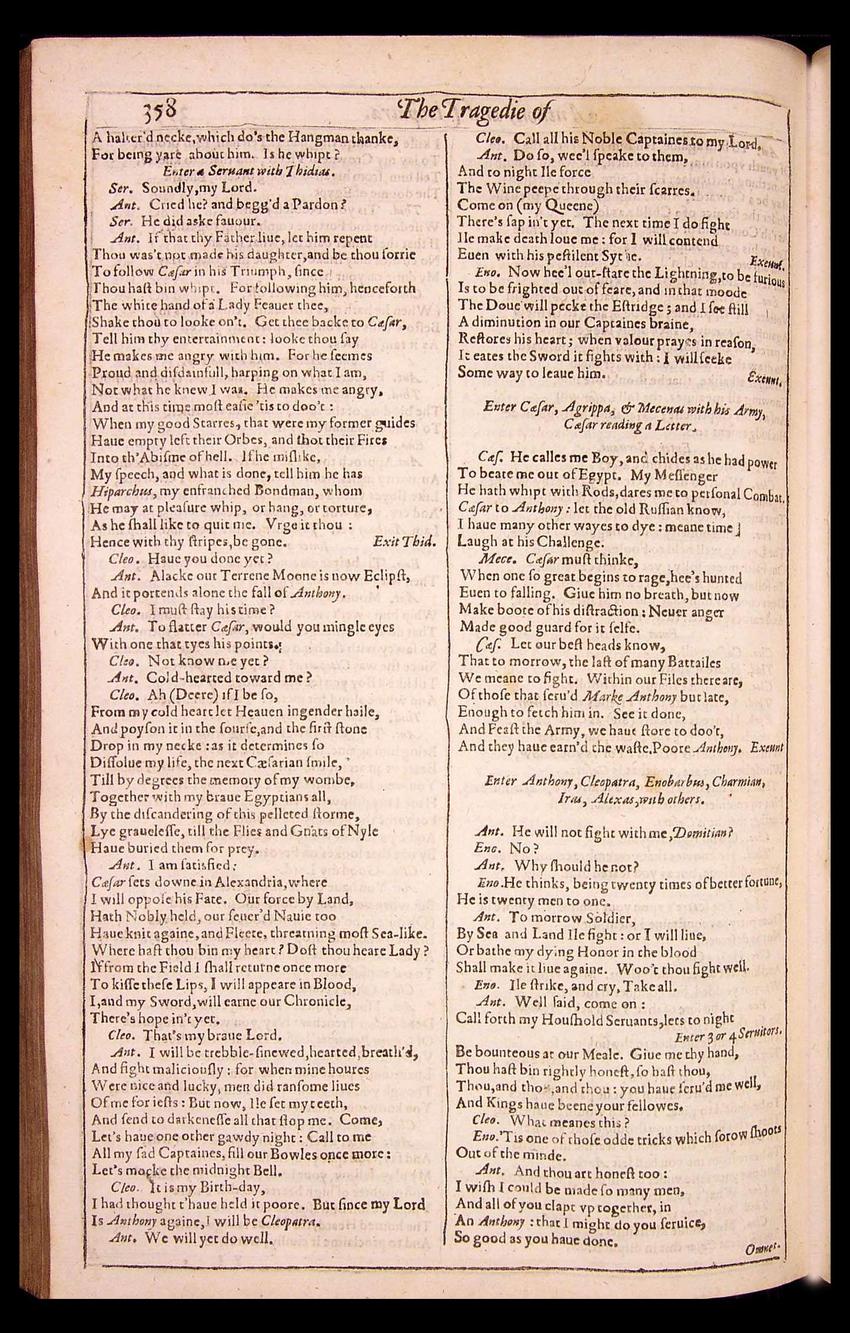 358
The Tragedie of
A halter'd necke, which do's the Hangman thanke,
For being yare about him. Is he whipt?
Enter a Seruant with Thidias.
Ser. Soundly, my Lord.
Ant. Cried he? and begg'd a Pardon?
Ser. He did aske fauour.
Ant. If that thy Father liue, let him repent
Thou was't not made his daughter, and be thou sorrie
To follow Cæsar in his Triumph, since
Thou hast bin whipt. For following him, henceforth
The white hand of a Lady Feauer thee,
Shake thou to looke on't. Get thee backe to Cæsar,
Tell him thy entertainment: looke thou say
He makes me angry with him. For he seemes
Proud and disdainfull, harping on what I am,
Not what he knew I was. He makes me angry,
And at this time most easie 'tis to doo't:
When my good Starres, that were my former guides
Haue empty left their Orbes, and shot their Fires
Into th'Abisme of hell. If he mislike,
My speech, and what is done, tell him he has
Hiparchus, my enfranched Bondman, whom
He may at pleasure whip, or hang, or torture,
As he shall like to quit me. Vrge it thou:
Hence with thy stripes, be gone. Exit Thid.
Cleo. Haue you done yet?
Ant. Alacke our Terrene Moone is now Eclipst,
And it portends alone the fall of Anthony.
Cleo. I must stay his time?
Ant. To flatter Cæsar, would you mingle eyes
With one that tyes his points.
Cleo. Not know me yet?
Ant. Cold-hearted toward me?
Cleo. Ah (Deere) if I be so,
From my cold heart let Heauen ingender haile,
And poyson it in the sourse, and the first stone
Drop in my necke: as it determines so
Dissolue my life, the next Cæsarian smile,
Till by degrees the memory of my wombe,
Together with my braue Egyptians all,
By the discandering of this pelleted storme,
Lye grauelesse, till the Flies and Gnats of Nyle
Haue buried them for prey.
Ant. I am satisfied:
Cæsar sets downe in Alexandria, where
I will oppose his Fate. Our force by Land,
Hath Nobly held, our seuer'd Nauie too
Haue knit againe, and Fleete, threatning most Sea-like.
Where hast thou bin my heart? Dost thou heare Lady?
If from the Field I shall returne once more
To kisse these Lips, I will appeare in Blood,
I, and my Sword, will earne our Chronicle,
There's hope in't yet.
Cleo. That's my braue Lord.
Ant. I will be trebble-sinewed, hearted, breath'd,
And fight maliciously: for when mine houres
Were nice and lucky, men did ransome liues
Of me for iests: But now, Ile set my teeth,
And send to darkenesse all that stop me. Come,
Let's haue one other gawdy night: Call to me
All my sad Captaines, fill our Bowles once more:
Let's mocke the midnight Bell.
Cleo. It is my Birth-day,
I had thought t'haue held it poore. But since my Lord
Is Anthony againe, I will be Cleopatra.
Ant. We will yet do well.
Cleo. Call all his Noble Captaines to my Lord.
Ant. Do so, wee'l speake to them,
And to night Ile force
The Wine peepe through their scarres.
Come on (my Queene)
There's sap in't yet. The next time I do fight
Ile make death loue me: for I will contend
Euen with his pestilent Sythe. Exeunt.
Eno. Now hee'l out-stare the Lightning, to be furious
Is to be frighted out of feare, and in that moode
The Doue will pecke the Estridge; and I see still
A diminution in our Captaines braine,
Restores his heart; when valour prayes in reason,
It eates the Sword it fights with: I will seeke
Some way to leaue him. Exeunt.
Enter Cæsar, Agrippa, & Mecenas with his Army,
Cæsar reading a Letter.
Cæs. He calles me Boy, and chides as he had power
To beate me out of Egypt. My Messenger
He hath whipt with Rods, dares me to personal Combat.
Cæsar to Anthony: let the old Ruffian know,
I haue many other wayes to dye: meane time
Laugh at his Challenge.
Mece. Cæsar must thinke,
When one so great begins to rage, hee's hunted
Euen to falling. Giue him no breath, but now
Make boote of his distraction: Neuer anger
Made good guard for it selfe.
Cæs. Let our best heads know,
That to morrow, the last of many Battailes
We meane to fight. Within our Files there are,
Of those that seru'd Marke Anthony but late,
Enough to fetch him in. See it done,
And Feast the Army, we haue store to doo't,
And they haue earn'd the waste. Poore Anthony. Exeunt
Enter Anthony, Cleopatra, Enobarbus, Charmian,
Iras, Alexas, with others.
Ant. He will not fight with me, Domitian?
Eno. No?
Ant. Why should he not?
Eno. He thinks, being twenty times of better fortune,
He is twenty men to one.
Ant. To morrow Soldier,
By Sea and Land Ile fight: or I will liue,
Or bathe my dying Honor in the blood
Shall make it liue againe. Woo't thou fight well.
Eno. Ile strike, and cry, Take all.
Ant. Well said, come on:
Call forth my Houshold Seruants, lets to night
Enter 3 or 4 Seruitors.
Be bounteous at our Meale. Giue me thy hand,
Thou hast bin rightly honest, so hast thou,
Thou, and thou, and thou: you haue seru'd me well,
And Kings haue beene your fellowes.
Cleo. What meanes this?
Eno. 'Tis one of those odde tricks which sorow shoots
Out of the minde.
Ant. And thou art honest too:
I wish I could be made so many men,
And all of you clapt vp together, in
An Anthony: that I might do you seruice,
So good as you haue done.
Omnes.